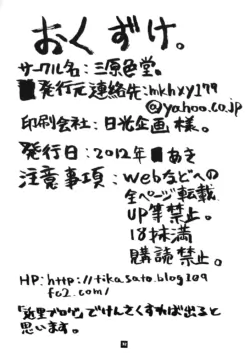 おくずけ。
サークル名：三原色堂。
発行元連絡先：mkhxy179
@yahoo.co.jp
印刷会社：日光企画様。
発行日：2012年 あき
注意事項：webなどへの
全ページ転載
UP等禁止。
18才未満
購読禁止。
HP: http://tikasato.blog109
fc2.com/
「近里ブログ」でけんさくすれば出ると
思います。